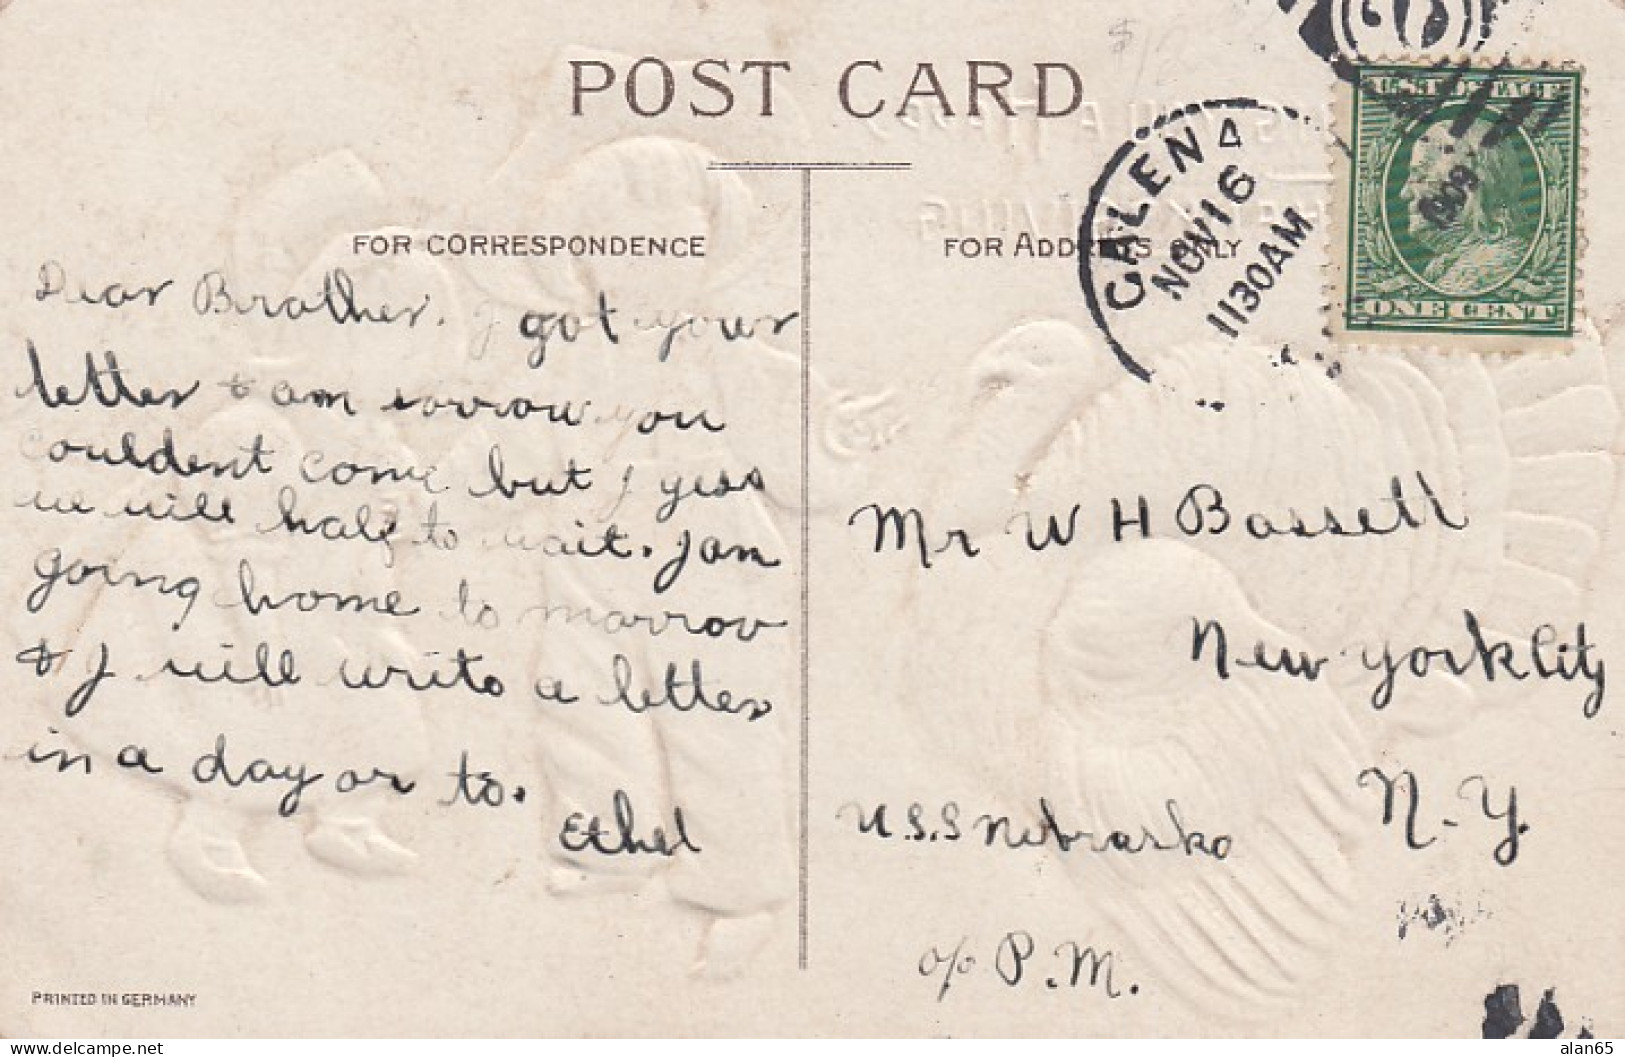 $12
POST CARD
FOR CORRESPONDENCE
FOR ADDRESS ONLY
GALENA
NOV 16
1130AM
1909
U.S. POSTAGE
ONE CENT
Dear Brother. I got your
letter & am sorrow you
couldent come but I gess
we will half to wait. I am
going home to marrow
& I will write a letter
in a day or to.
Ethel
Mr W H Bassett
New York City
N. Y.
U.S.S Nebraska
c/o P. M.
PRINTED IN GERMANY
alan65